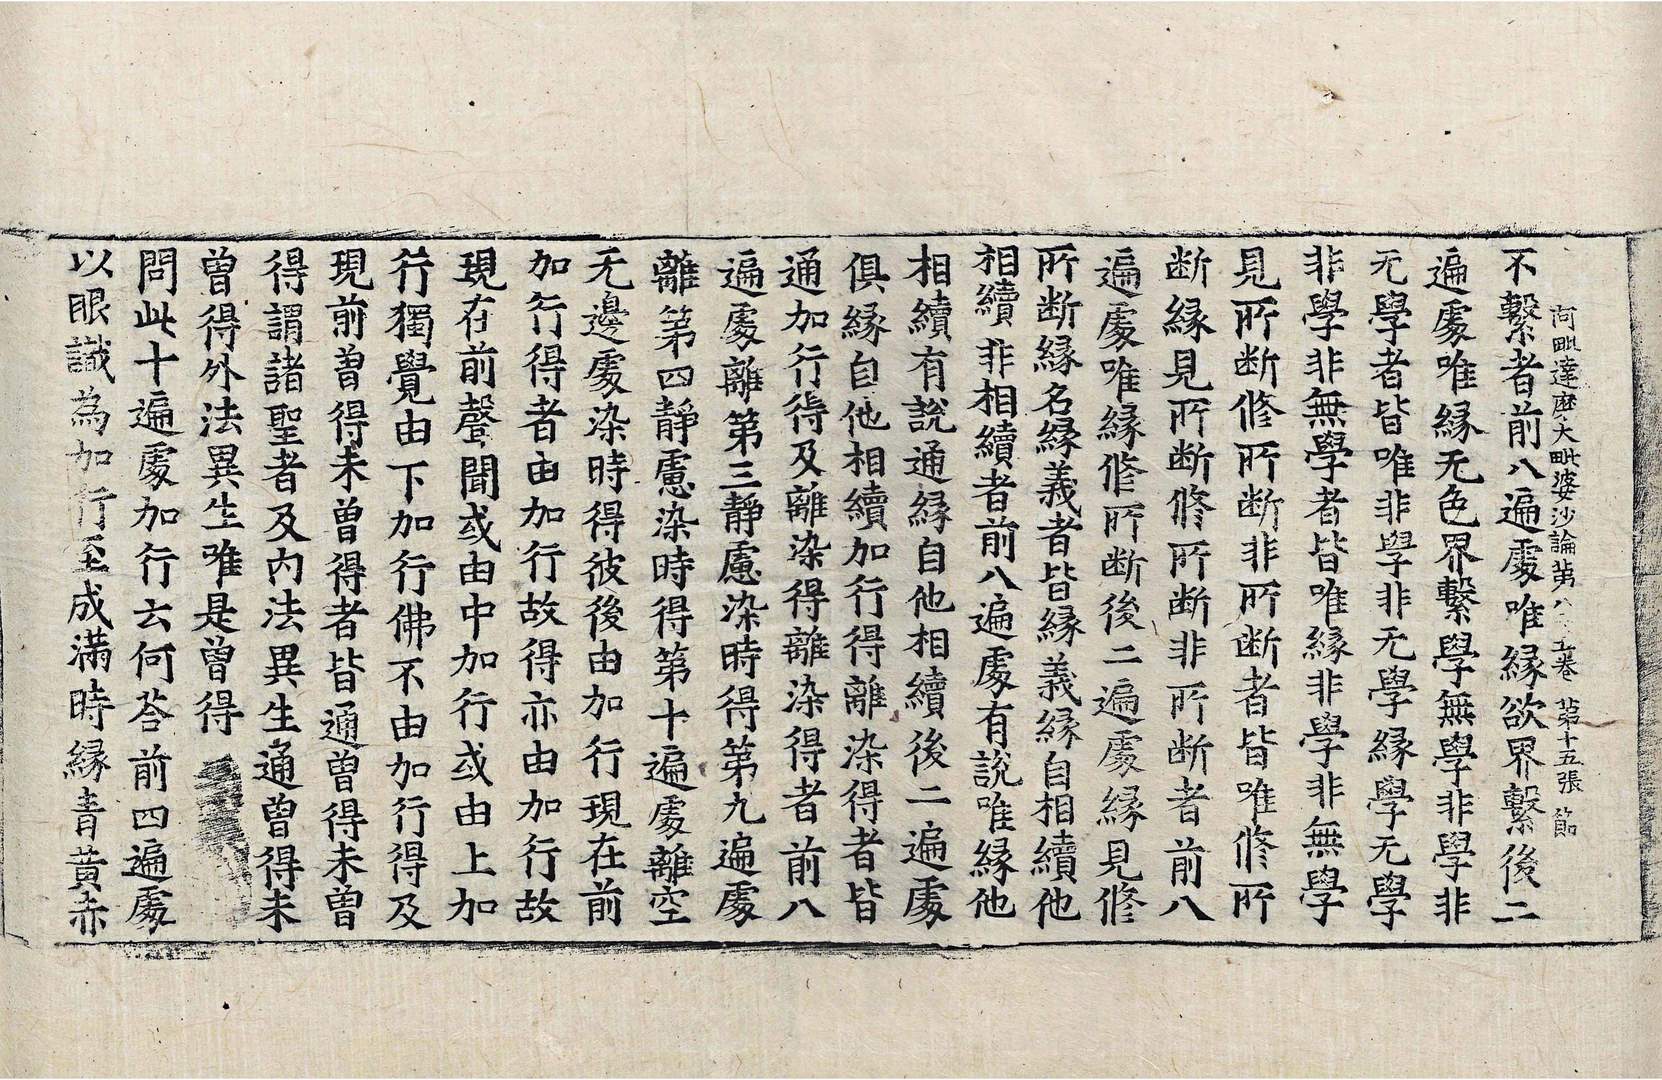 阿毗達磨大毗婆沙論第八十五卷 第十五張 節
不繫者前八遍處唯緣欲界繫後二
遍處唯緣无色界繫學無學非學非
无學者皆唯非學非无學緣學无學
非學非無學者皆唯緣非學非無學
見所斷修所斷非所斷者皆唯修所
斷緣見所斷修所斷非所斷者前八
遍處唯緣修所斷後二遍處緣見修
所斷緣名緣義者皆緣義緣自相續他
相續非相續者前八遍處有說唯緣他
相續有說通緣自他相續後二遍處
俱緣自他相續加行得離染得者皆
通加行得及離染得離染得者前八
遍處離第三靜慮染時得第九遍處
離第四靜慮染時得第十遍處離空
无邊處染時得彼後由加行現在前
加行得者由加行故得亦由加行故
現在前聲聞或由中加行或由上加
行獨覺由下加行佛不由加行得及
現前曾得未曾得者皆通曾得未曾
得謂諸聖者及內法異生通曾得未
曾得外法異生唯是曾得
問此十遍處加行云何荅前四遍處
以眼識為加行至成滿時緣青黃赤